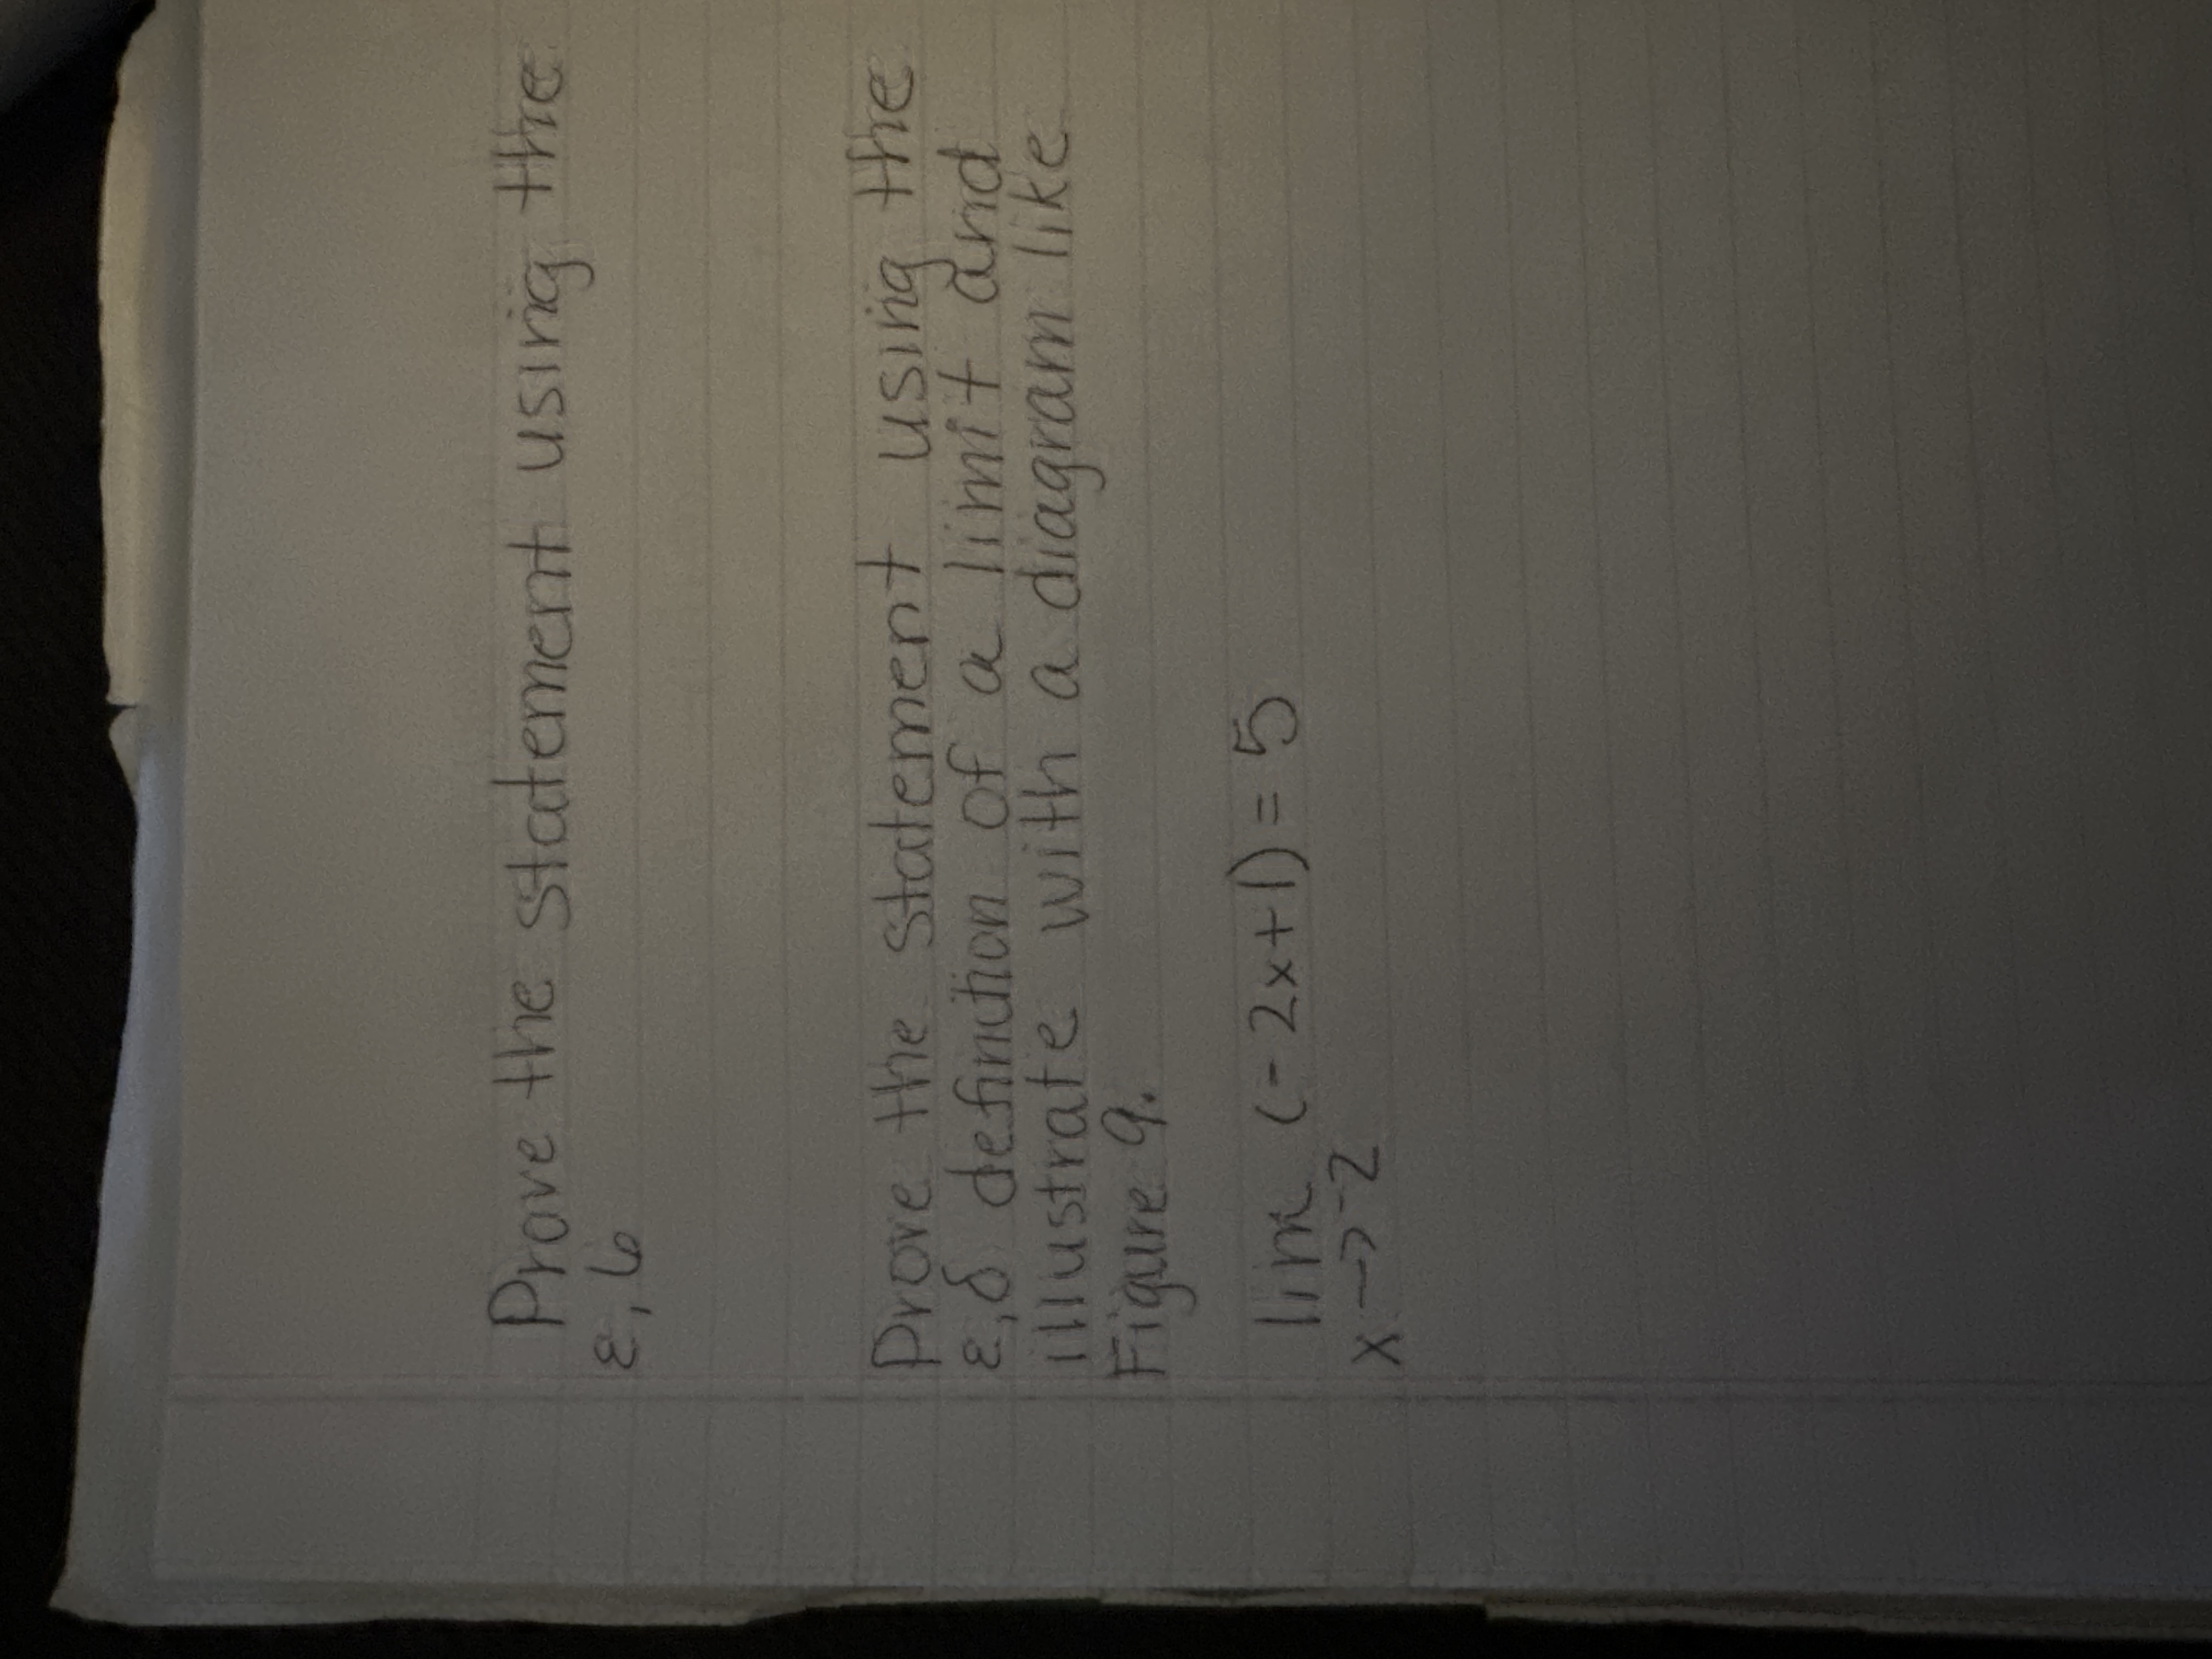 Prove the statement using the
ε, δ
Prove the statement using the
ε, δ definition of a limit and
illustrate with a diagram like
Figure 9.
lim (-2x+1) = 5
x→-2